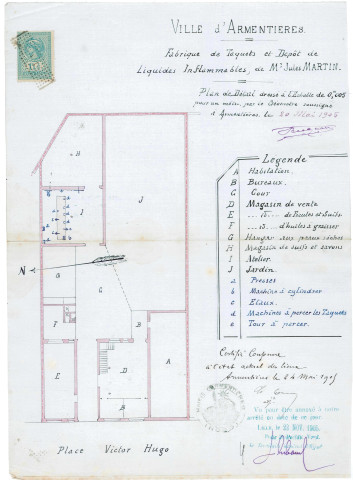 VILLE D'ARMENTIÈRES.
Fabrique de Taquets et Dépôt de
Liquides Inflammables, de Mr Jules MARTIN.
Plan de Détail dressé à l'Echelle de 0,005
pour un mètre, par le Géomètre soussigné
d'Armentières, le 20 Mai 1905
Légende
A Habitation.
B Bureaux.
C Cour
D Magasin de vente
E de Fécules et Suifs
F d'huiles à graisser
G Hangar aux peaux
H Magasin de suifs et savons
I Atelier.
J Jardin.
a Presses
b Machine à cylindrer
c Etaux.
d Machines à percer les Taquets
e Tour à percer.
B
J
I
N
G
C
F
B
E
D
A
B
Certifié Conforme
à l'état actuel des lieux
Armentières le 24 Mai 1905
Vu pour être annexé à notre
arrêté en date de ce jour
LILLE, le
Place Victor Hugo